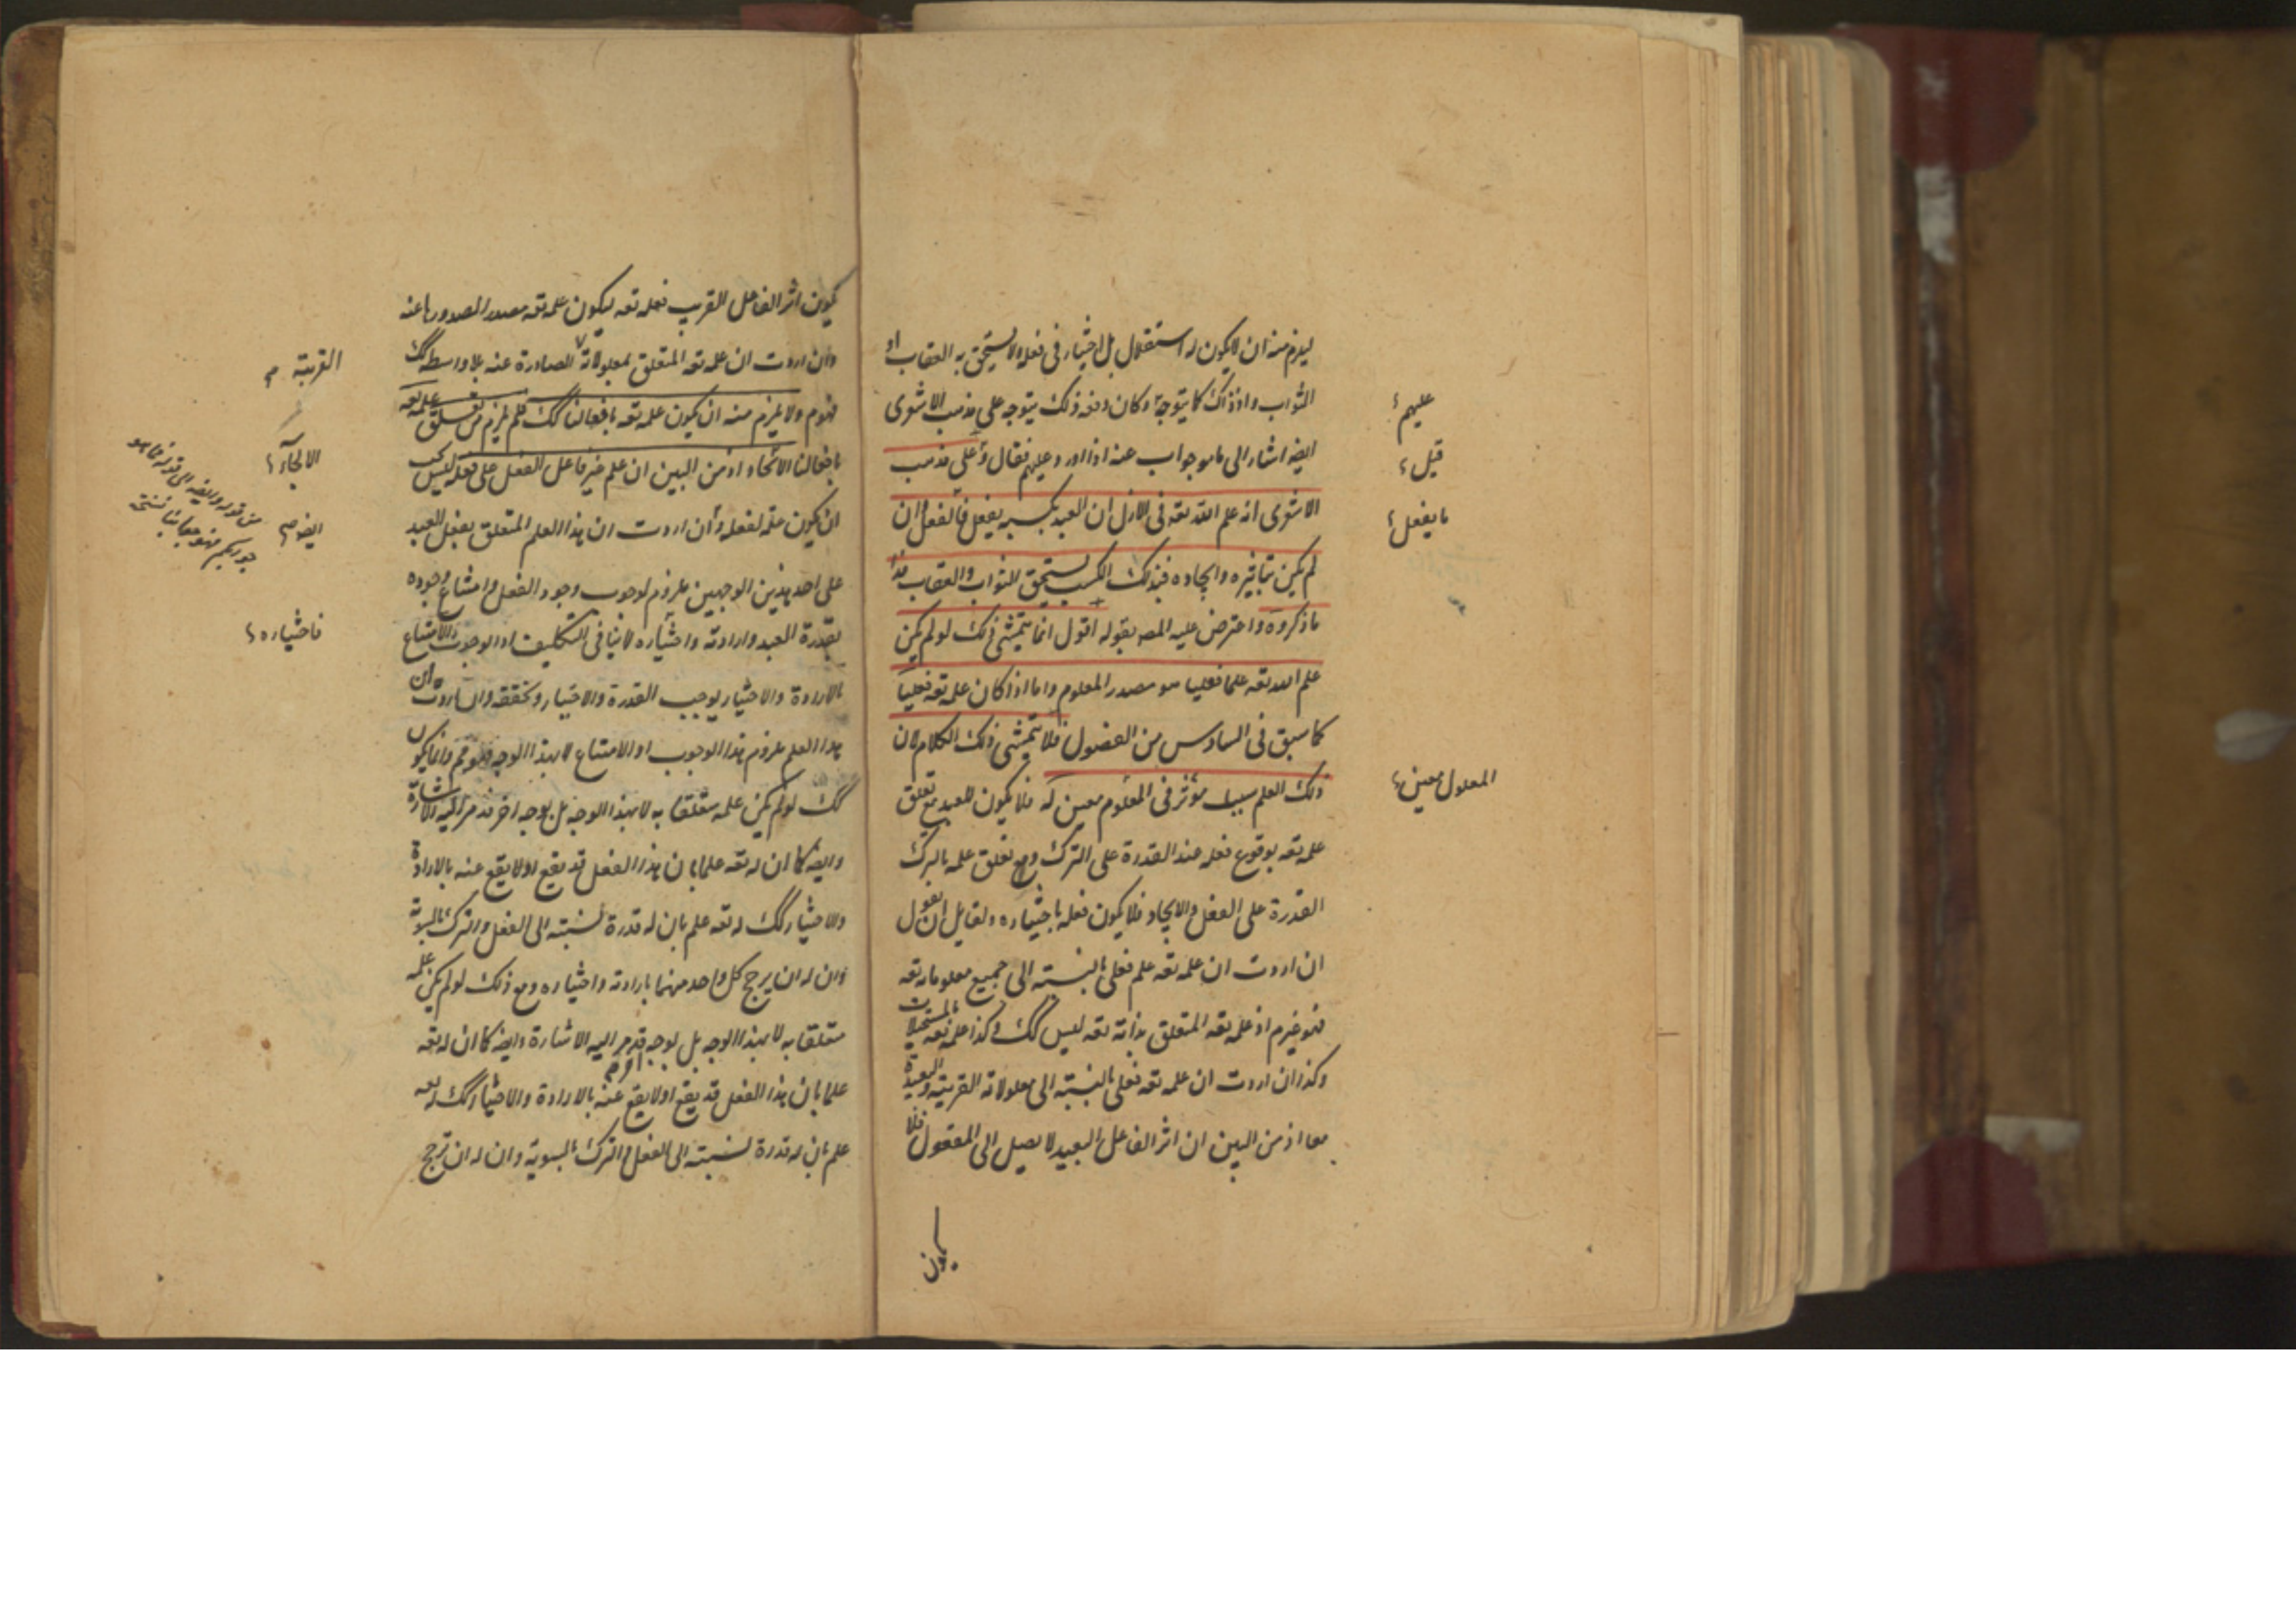 ليلزم منه ان لا يكون له استقلال بل اختيار فى فعله ولا يستحق به العقاب او
الثواب واذ ذاك كما يتوجه وكان دفعه ذلك يتوجه على مذهب الاشعرى
ايضا اشار الى ما هو جواب عنه اذا اورد عليهم فقال وعلى مذهب
الاشعرى انه علم الله تعه فى الازل ان العبد بكسبه يفعل فالفعل وان
لم يكن بتاثيره وايجاده فبذلك الكسب يستحق الثواب والعقاب هذا
ما ذكروه واعترض عليه المصه بقوله اقول انما يتمشى ذلك لو لم يكن
علم الله تعه علما فعليا هو مصدر المعلوم واما اذا كان علمه تعه فعليا
كما سبق فى السادس من الفصول فلا يتمشى ذلك الكلام لان
ذلك العلم سبب مؤثر فى المعلوم معين له فلا يكون للعبد مع تعلق
علمه تعه بوقوع فعله عند القدرة على الترك ومع تعلق علمه بالترك
القدرة على الفعل والايجاد فلا يكون فعله باختياره ولقايل ان يقول
ان اردت ان علمه تعه علم فعلى بالنسبة الى جميع معلوماته تعه
فهو غير م اذ علمه تعه المتعلق بذاته تعه ليس كك وكذا علمه تعه بالمستحيلات
وكذا ان اردت ان علمه تعه فعلى بالنسبة الى معلولاته القريبة والبعيدة
معا اذ من البين ان اثر الفاعل البعيد لا يصل الى المفعول فلا
يكون
عليهم
قيل
ما يفعل
المعلول معين
يكون اثر الفاعل القريب فعله تعه ليكون علمه تعه مصدر الصدورها عنه
وان اردت ان علمه تعه المتعلق بمعلولاته الصادرة عنه بلا واسطه كك
فهو م ولا يلزم منه ان يكون علمه تعه بافعالنا كك فلم يلزم من تعلق علمه تعه
بافعالنا الايجاد اذ من البين ان علم غير فاعل الفعل على فعله ليس يجب
ان يكون علة لفعله وان اردت ان هذا العلم المتعلق بفعل العبد
على احد هذين الوجهين ملزوم لوجوب وجود الفعل وامتناع وجوده
بقدرة العبد وارادته واختياره لا ينافى التكليف اذ الوجوب والامتناع
بالارادة والاختيار يوجب القدرة والاختيار وتحققه وان اردت ان
هذا العلم ملزوم هذا الوجوب او الامتناع لا بهذا الوجه فهو مم وانما يكون
كك لو لم يكن علمه متعلقا به لا بهذا الوجه بل بوجه اخر قد مر اليه الاشارة
وايضه كما ان له تعه علما بان هذا الفعل قد يقع او لا يقع عنه بالارادة
والاختيار كك له تعه علم بان له قدرة نسبته الى الفعل والترك بالسوية
وان له ان يرجح كل واحد منهما بارادته واختياره ومع ذلك لو لم يكن علمه
متعلقا به لا بهذا الوجه بل بوجه قد مر اليه الاشارة وايضه كما ان له تعه
علما بان هذا الفعل قد يقع او لا يقع عنه بالارادة والاختيار كك له تعه
علم بان له قدرة نسبته الى الفعل والترك بالسوية وان له ان يرجح
القريبة
الالجاء
ايضه
فاختياره